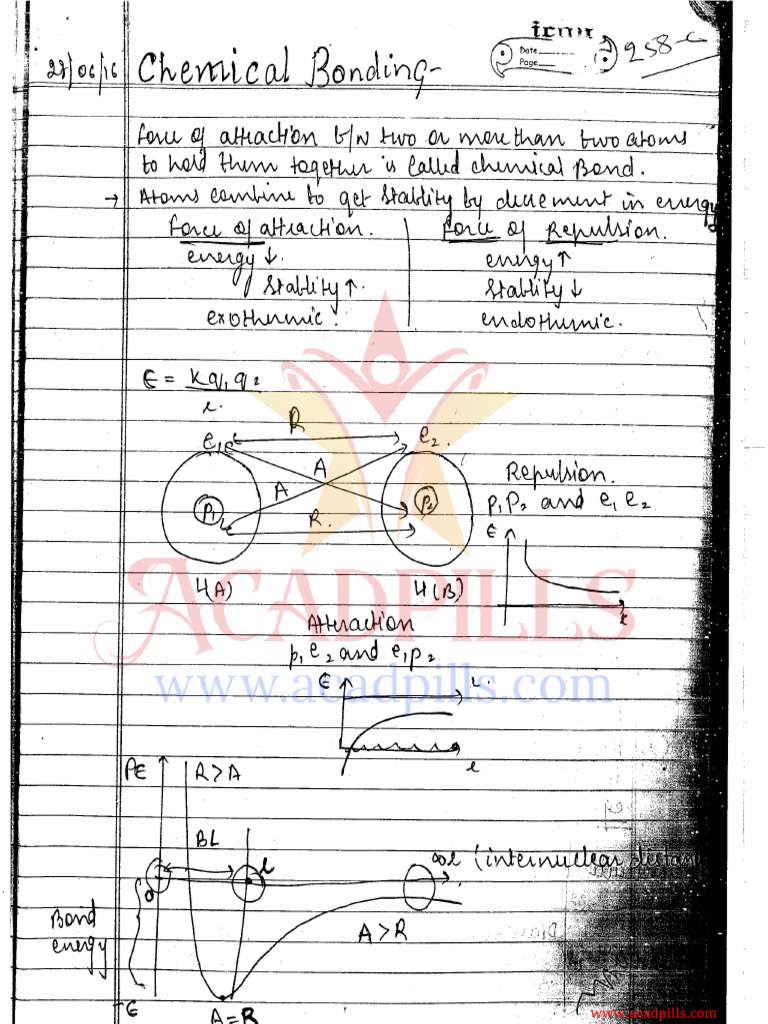 Date
Page
258-C
27/06/16 Chemical Bonding-
Force of attraction b/w two or more than two atoms
to hold them together is called chemical Bond.
→ Atoms combine to get stablity by decrement in energy
Force of attraction. Force of Repulsion.
energy ↓. energy ↑
stablity ↑. stablity ↓
exothermic. endothermic.
E = Kq₁q₂
r.
R
e₁ e₂.
A
A
R.
P₁ P₂
Repulsion.
P₁P₂ and e₁e₂.
E
r
H(A) H(B)
ACADPILLS
Attraction
P₁e₂ and e₁P₂
www.acadpills.com
E r.
r
PE R>A
BL
∞r (internuclear distan
0
Bond
energy
A>R
-E
A=R
www.acadpills.com